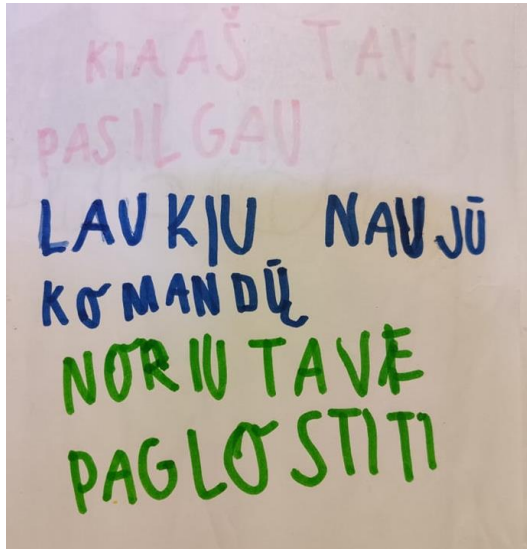 KIAAŠ TAVAS
PASILGAU
LAUKIU NAUJŪ
KOMANDŲ
NORIU TAVE
PAGLOSTITI